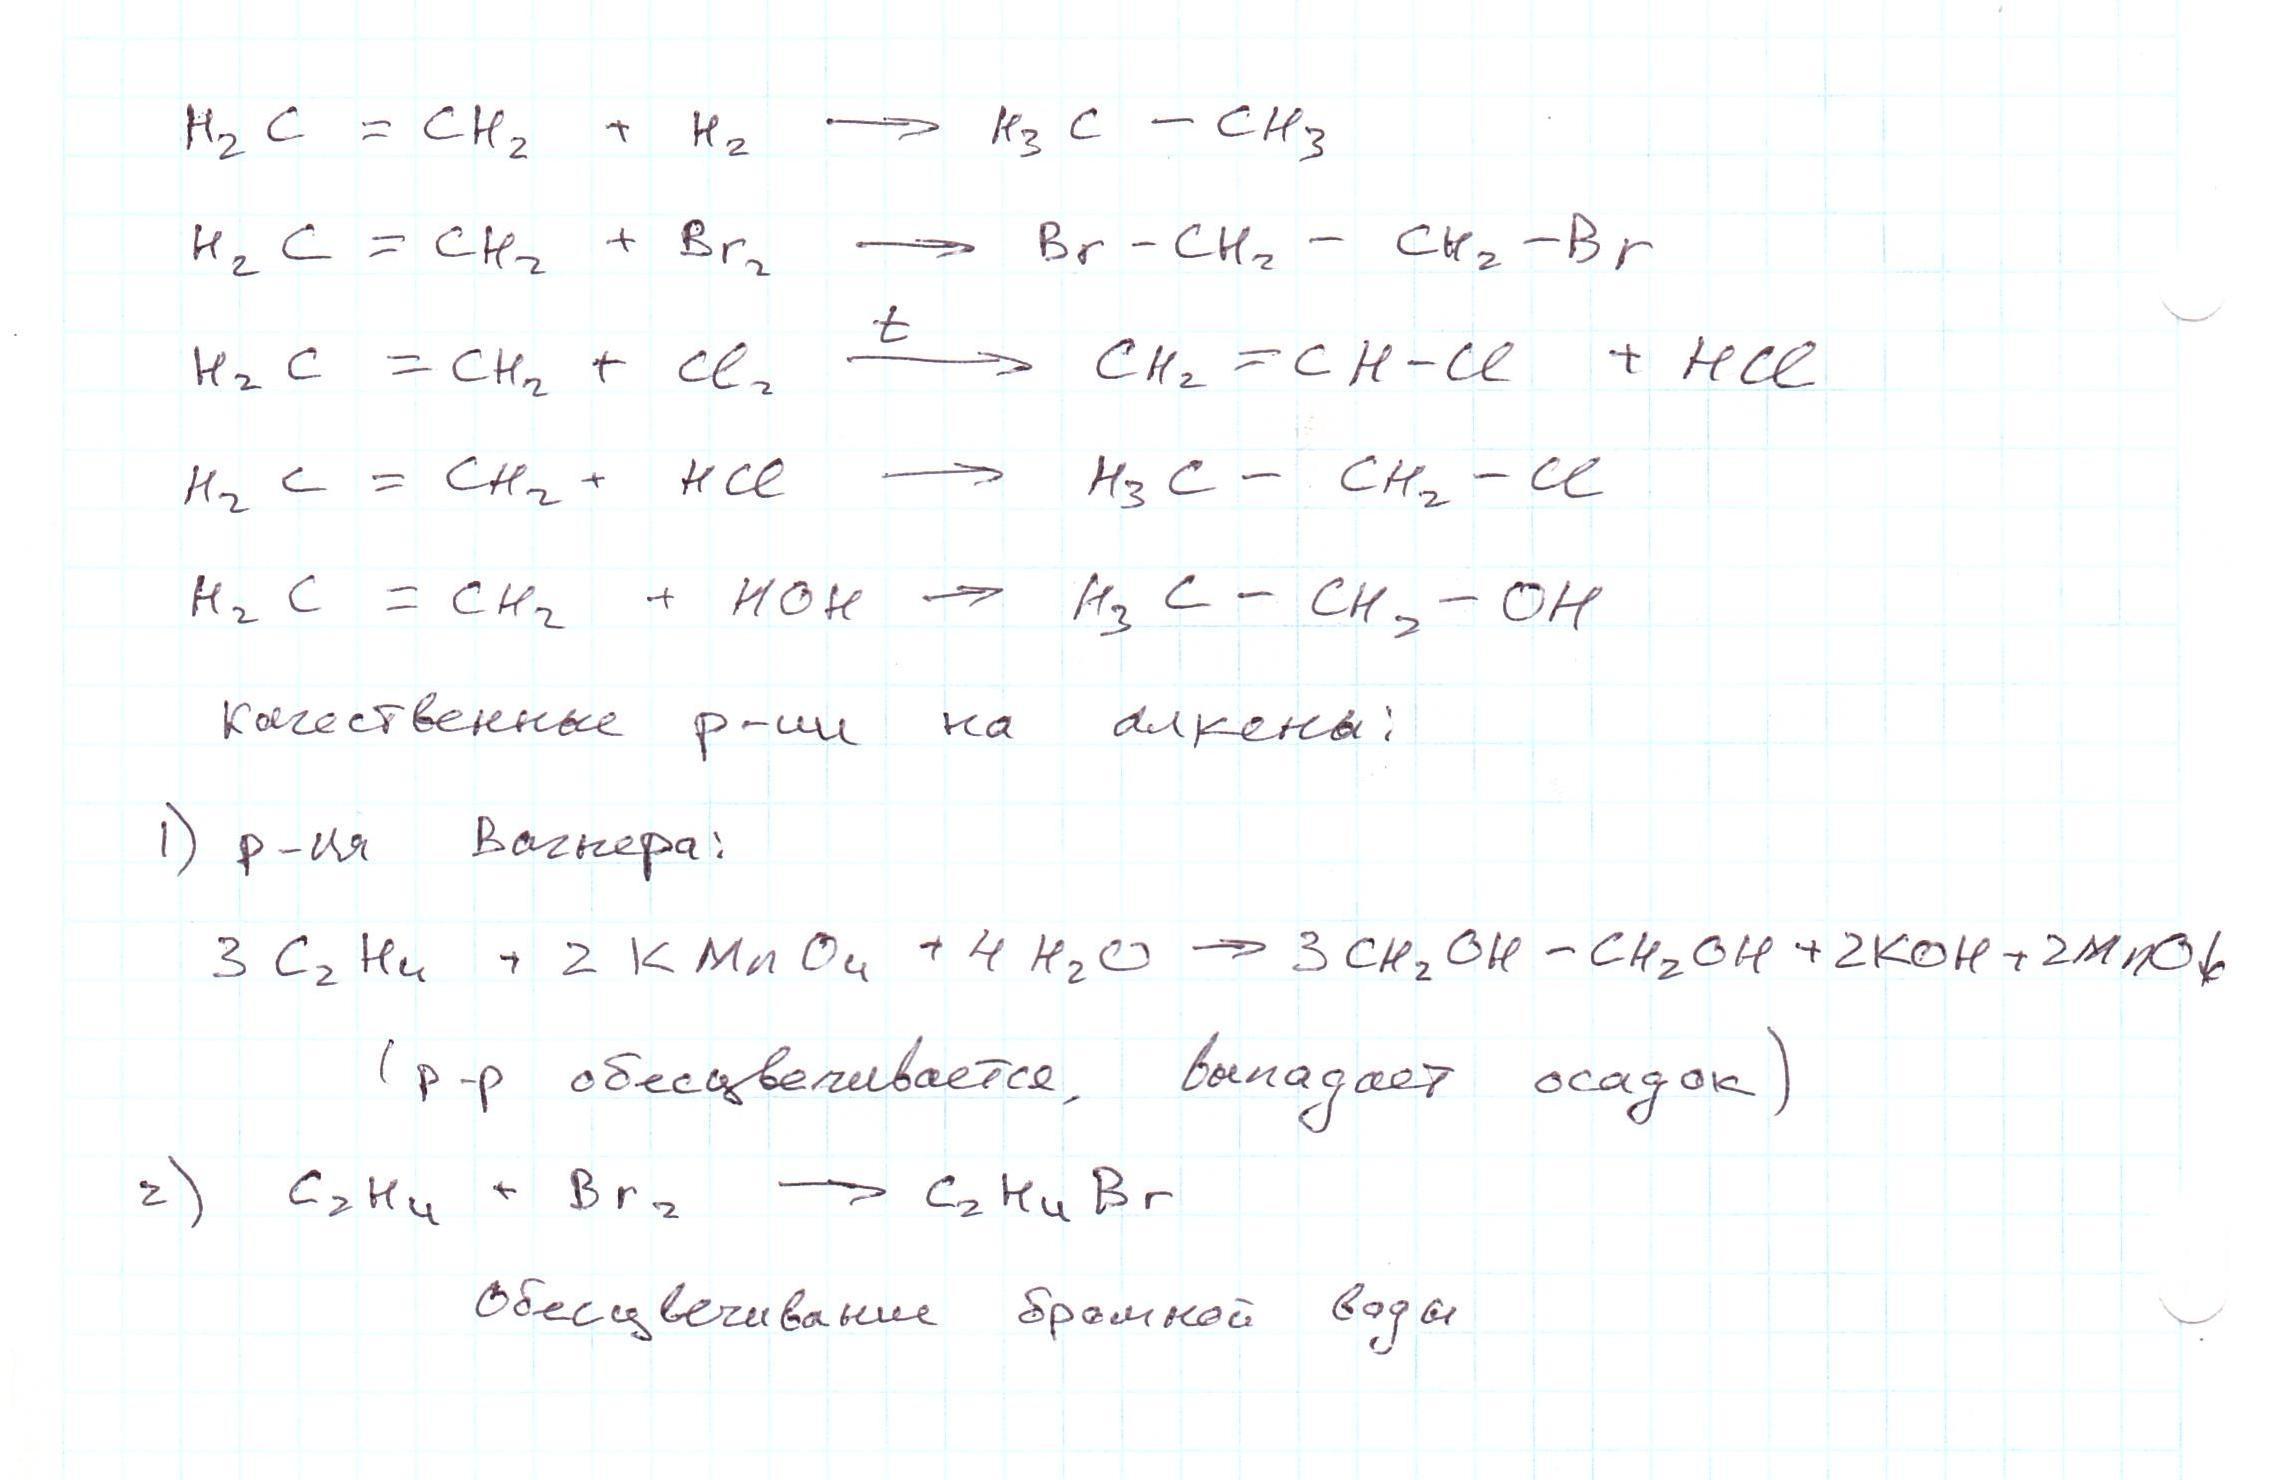 H₂C = CH₂ + H₂ → H₃C – CH₃
H₂C = CH₂ + Br₂ → Br – CH₂ – CH₂ – Br
H₂C = CH₂ + Cl₂ →ᵗ CH₂ = CH – Cl + HCl
H₂C = CH₂ + HCl → H₃C – CH₂ – Cl
H₂C = CH₂ + HOH → H₃C – CH₂ – OH
Качественные р-ции на алкены:
1) р-ция Вагнера:
3 C₂H₄ + 2 KMnO₄ + 4 H₂O → 3 CH₂OH – CH₂OH + 2KOH + 2MnO↓
(р-р обесцвечивается, выпадает осадок)
2) C₂H₄ + Br₂ → C₂H₄Br
Обесцвечивание бромной воды